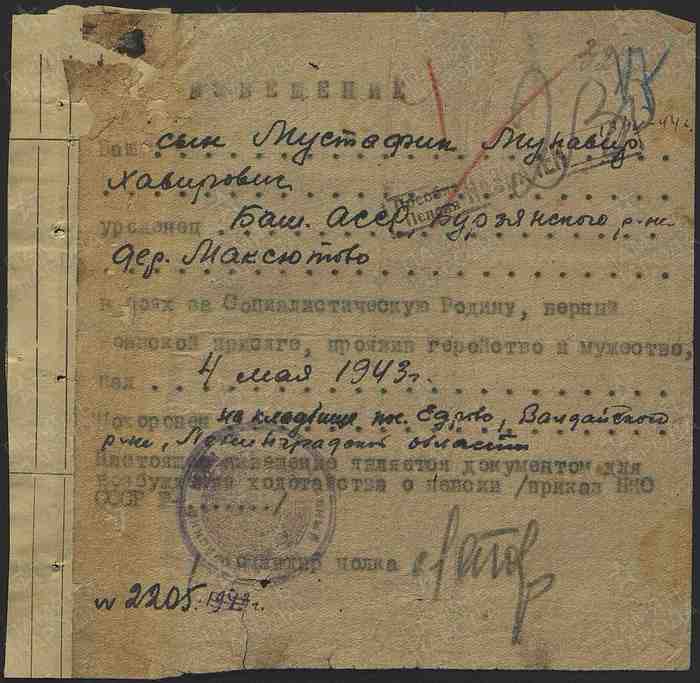 ИЗВЕЩЕНИЕ
Ваш сын Мустафин Мунавир
Хавирович
уроженец Баш. АССР, Бурзянского р-на
дер. Максютово
в боях за Социалистическую Родину, верный
воинской присяге, проявив геройство и мужество,
пал 4 мая 1943 г.
Похоронен на кладбище пос. Едрово, Валдайского
р-на, Ленинградской области
Настоящее извещение является документом для
возбуждения ходатайства о пенсии /приказ НКО
СССР № /
Командир полка